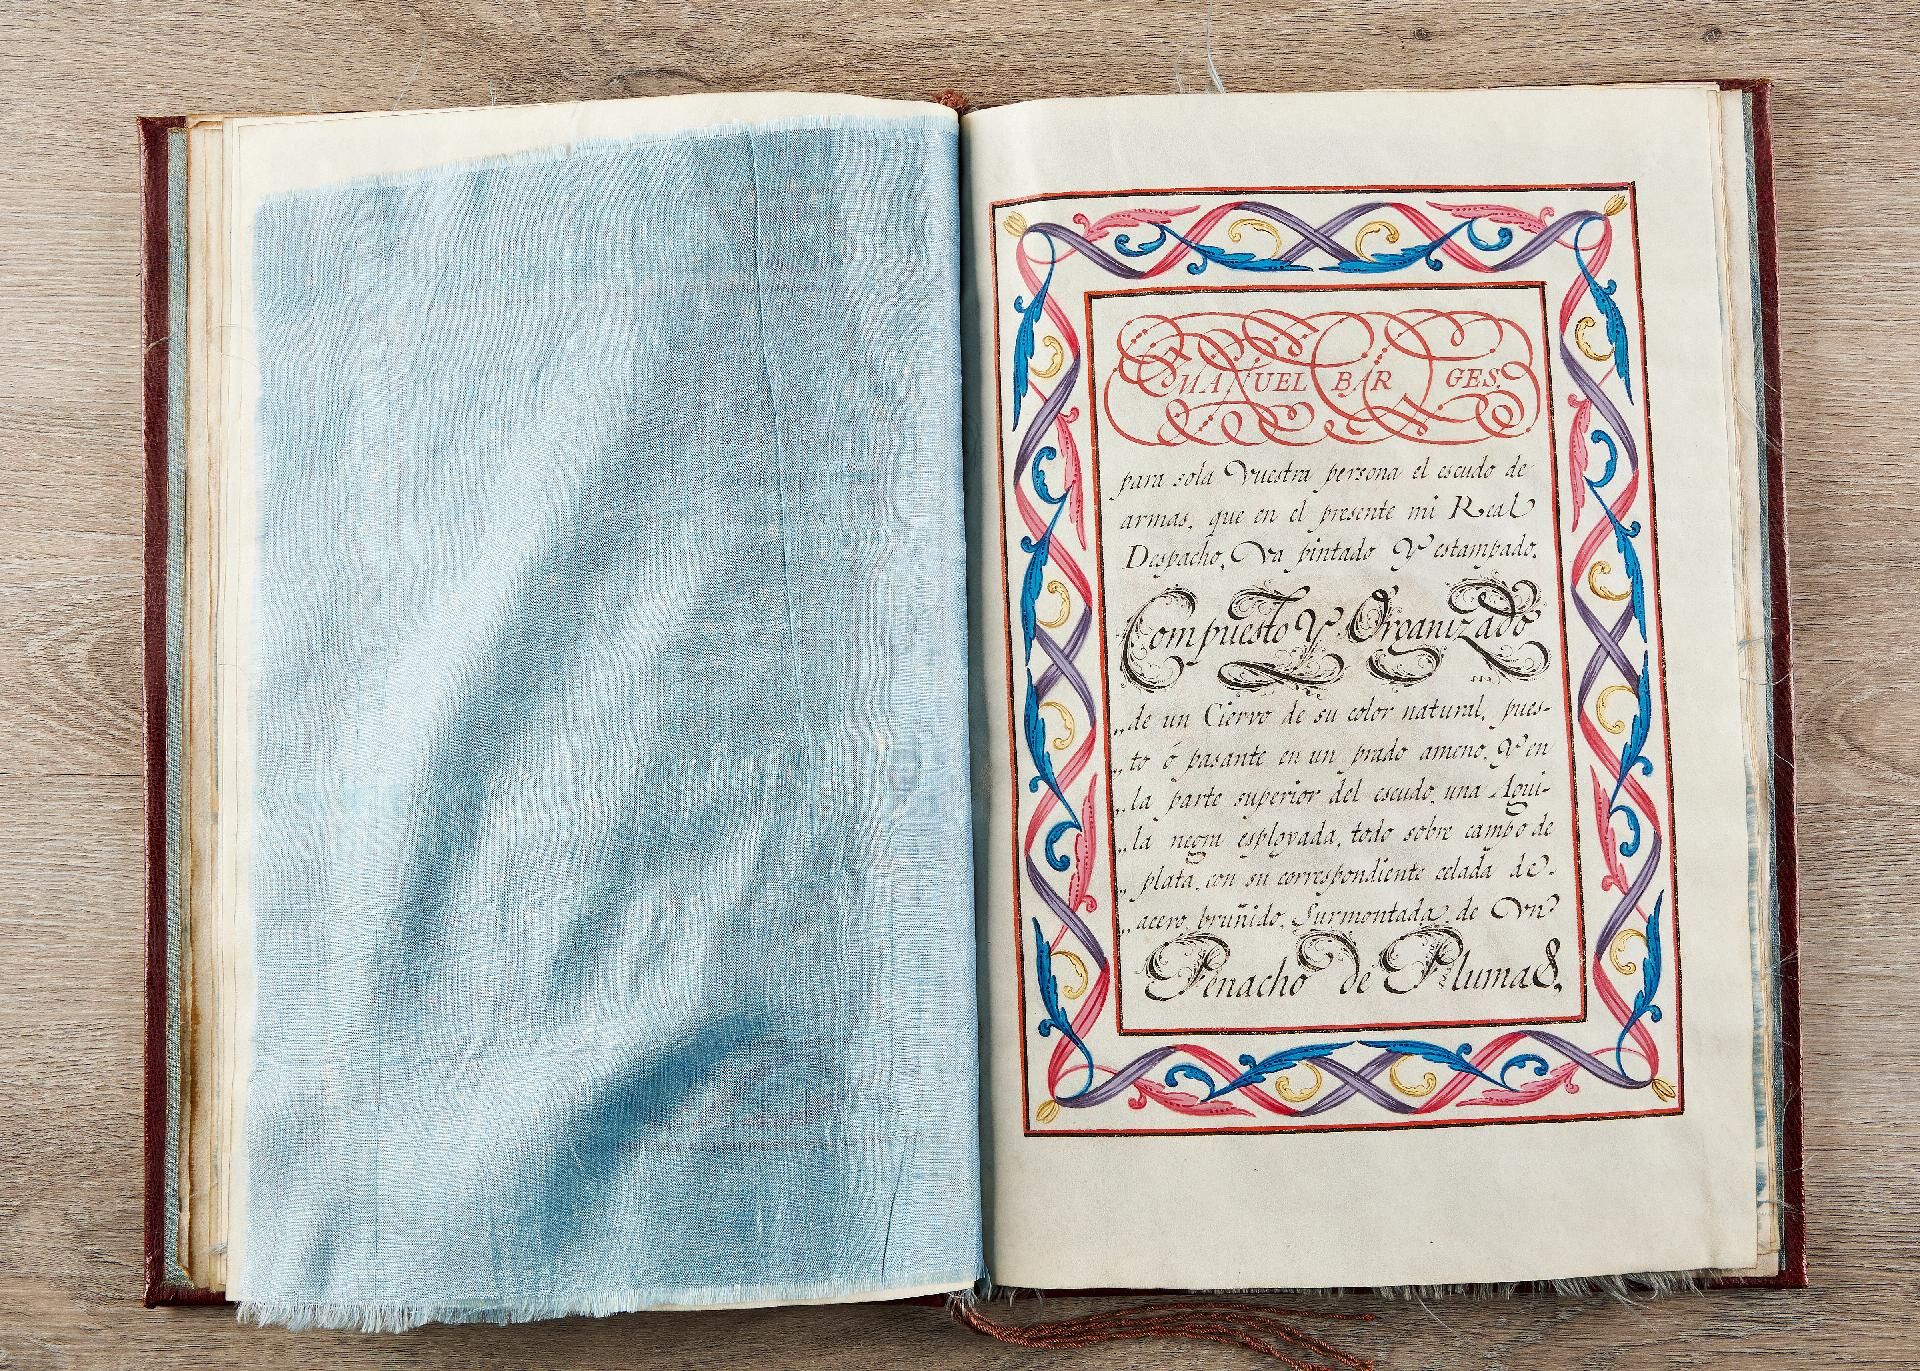 MANUEL BARGES,
para sola Vuestra persona el escudo de
armas, que en el presente mi Real
Despacho, Va pintado Y estampado.
Compuesto Y Organizado
„de un Ciervo de su color natural, pues-
„to ó pasante en un prado ameno, Y en
„la parte superior del escudo, una Agui-
„la negra esployada, todo sobre campo de
„plata, con su correspondiente celada de
„acero bruñido, Surmontada de Vn
Penacho de Plumas.